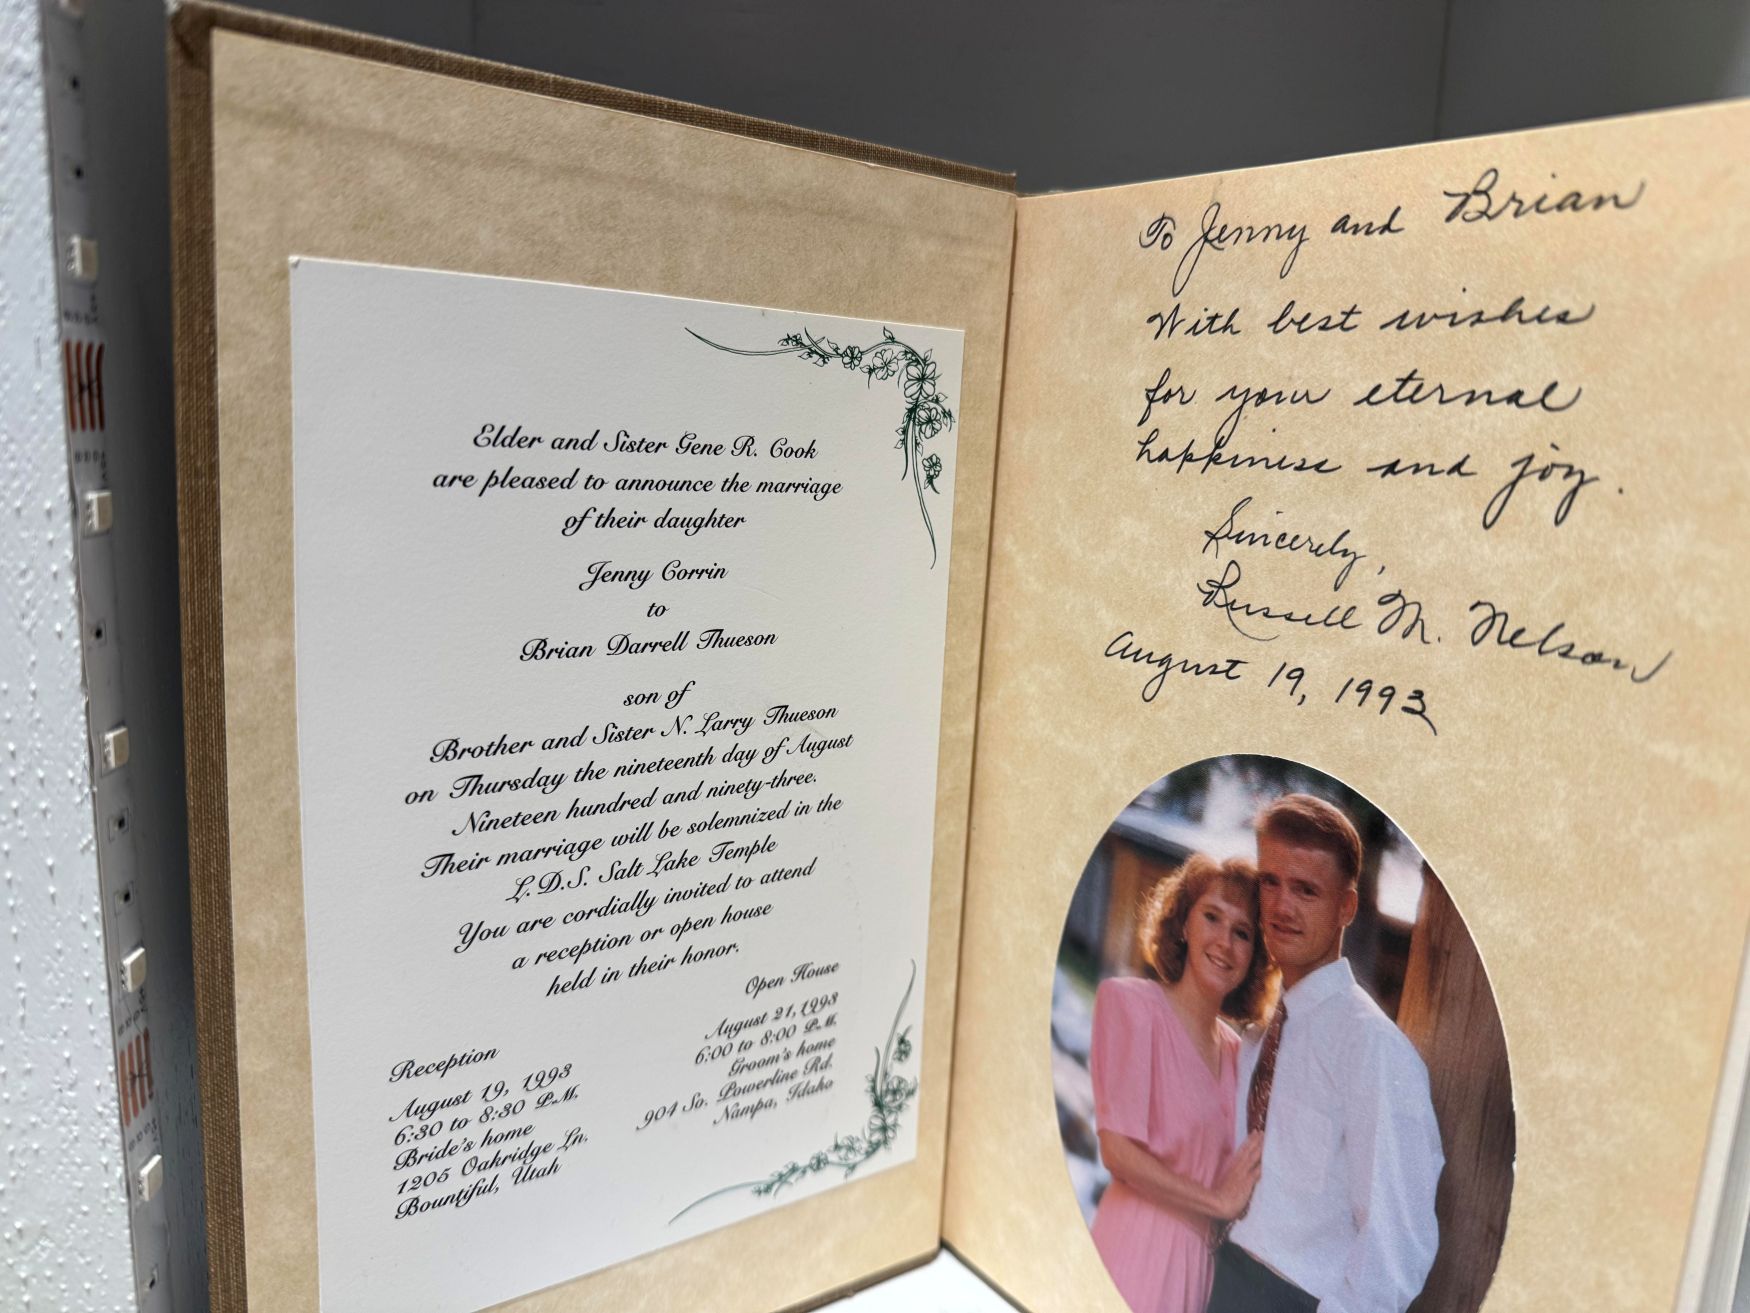 Elder and Sister Gene R. Cook
are pleased to announce the marriage
of their daughter
Jenny Corrin
to
Brian Darrell Thueson
son of
Brother and Sister N. Larry Thueson
on Thursday the nineteenth day of August
Nineteen hundred and ninety-three.
Their marriage will be solemnized in the
L.D.S. Salt Lake Temple
You are cordially invited to attend
a reception or open house
held in their honor.
Reception
August 19, 1993
6:30 to 8:30 P.M.
Bride's home
1205 Oakridge Ln.
Bountiful, Utah
Open House
August 21, 1993
6:00 to 8:00 P.M.
Groom's home
904 So. Powerline Rd.
Nampa, Idaho
To Jenny and Brian
With best wishes
for your eternal
happiness and joy.
Sincerely,
Russell M. Nelson
August 19, 1993